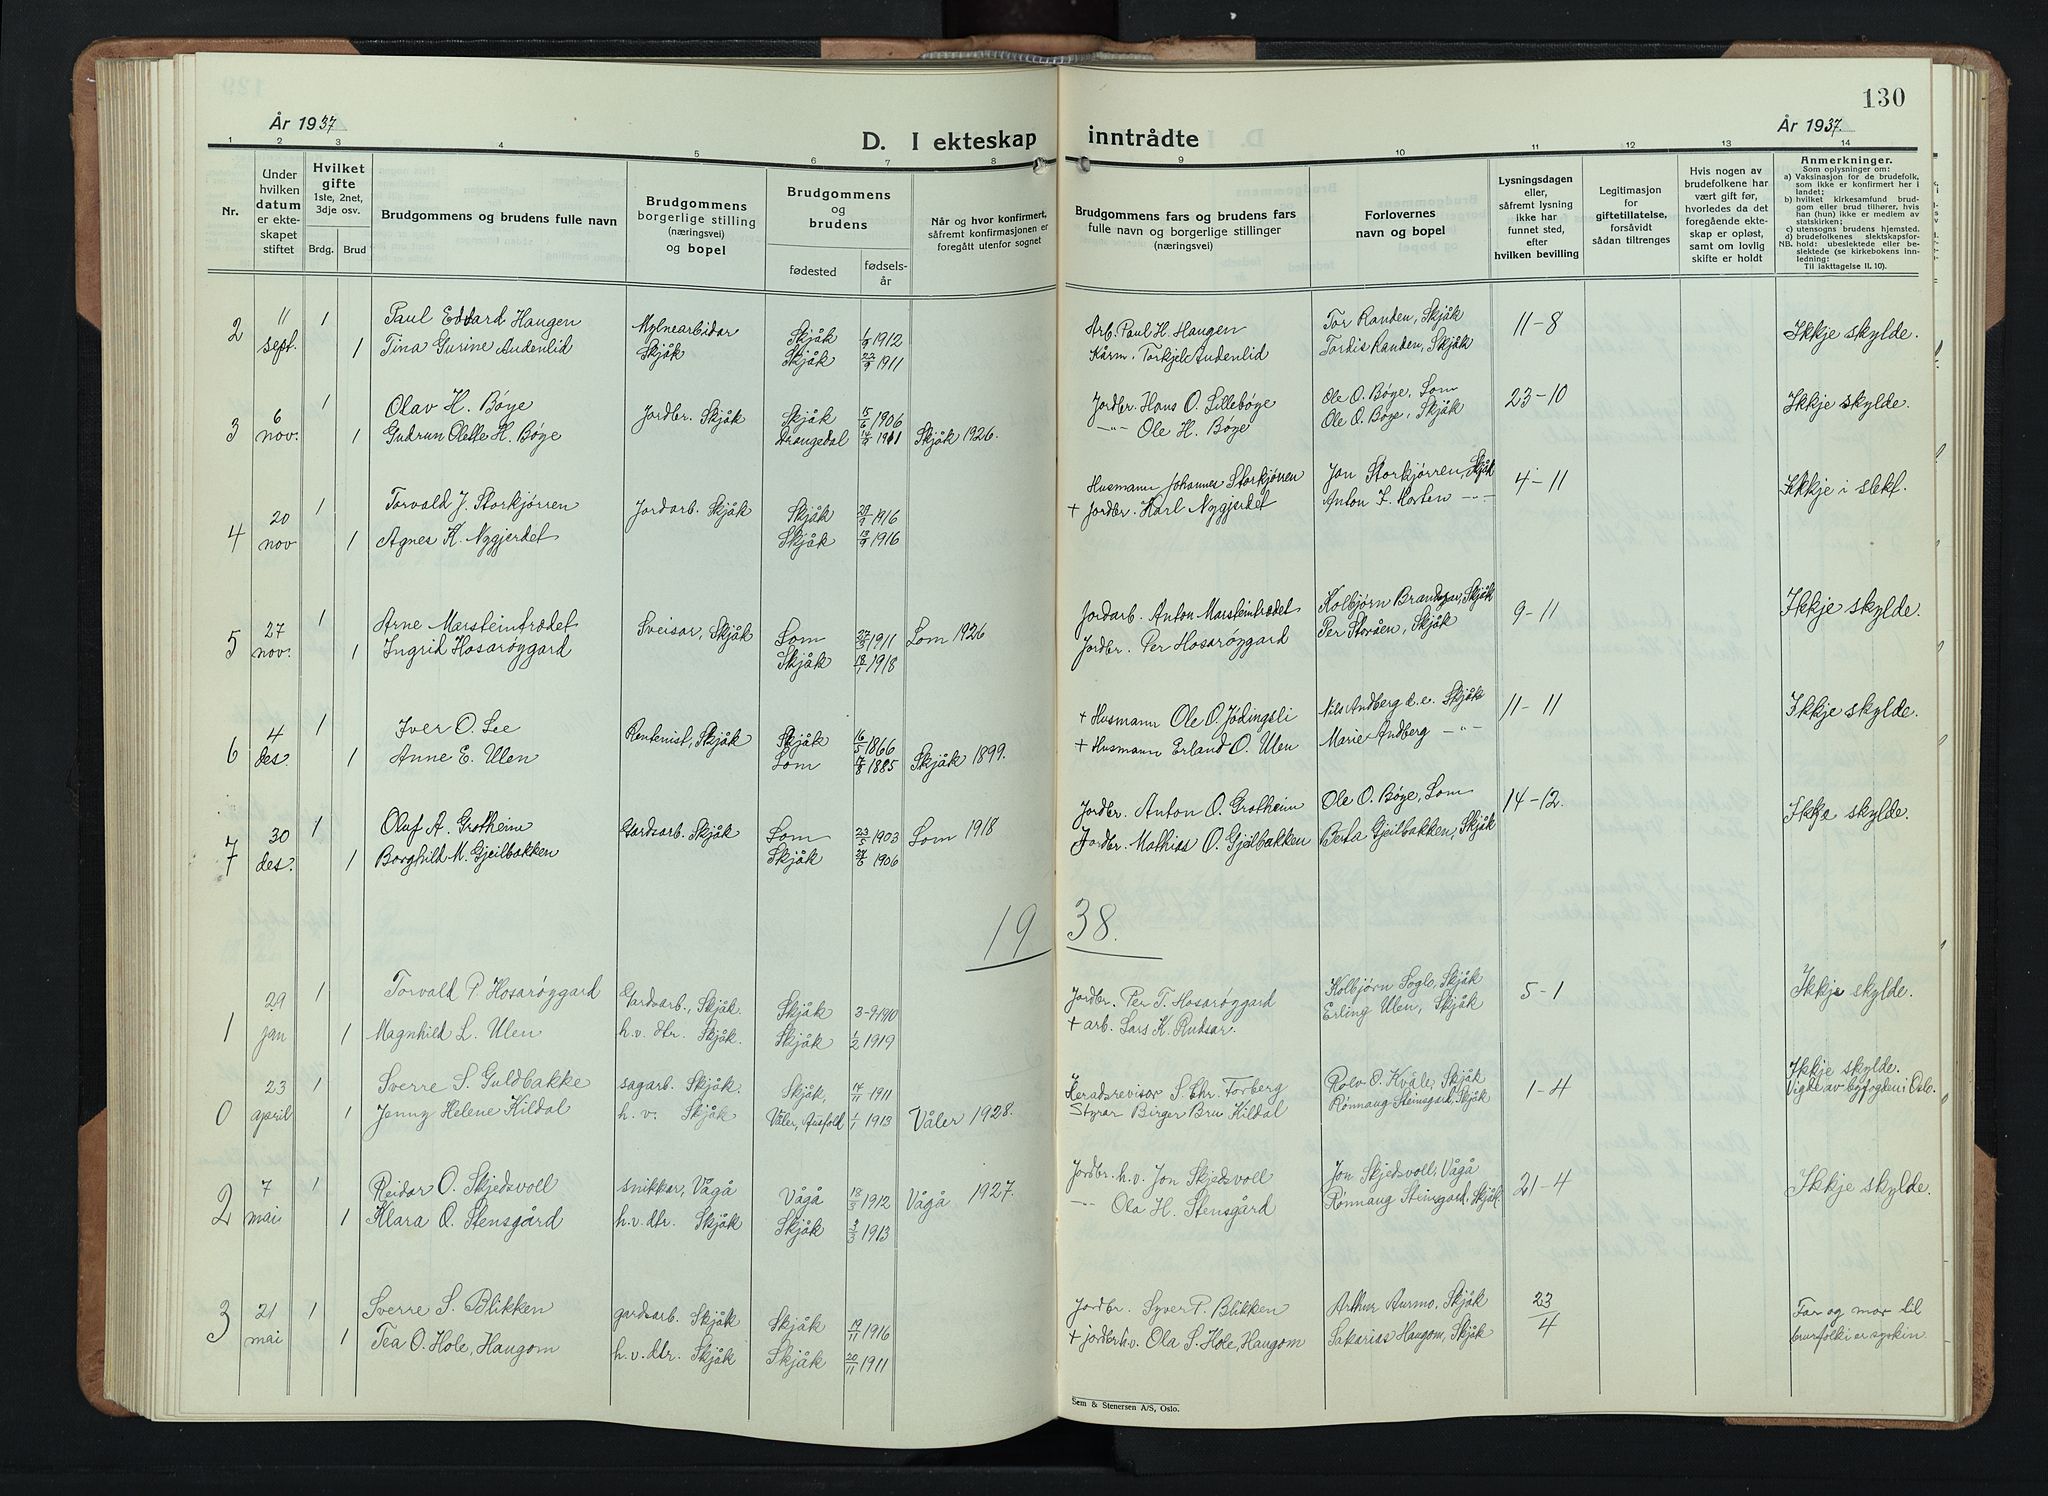 130
År 1937
D. I ekteskap inntrådte
År 1937.
1 2 3 4 5 6 7 8 9 10 11 12 13 14
Nr.
Under hvilken datum er ekteskapet stiftet
Hvilket gifte 1ste, 2net, 3dje osv.
Brdg. Brud
Brudgommens og brudens fulle navn
Brudgommens borgerlige stilling (næringsvei) og bopel
Brudgommens og brudens
fødested
fødselsår
Når og hvor konfirmert, såfremt konfirmasjonen er foregått utenfor sognet
Brudgommens fars og brudens fars fulle navn og borgerlige stillinger (næringsvei)
Forlovernes navn og bopel
Lysningsdagen eller, såfremt lysning ikke har funnet sted, efter hvilken bevilling
Legitimasjon for giftetillatelse, forsåvidt sådan tiltrenges
Hvis nogen av brudefolkene har vært gift før, hvorledes da det foregående ekteskap er opløst, samt om lovlig skifte er holdt
Anmerkninger.
Som oplysninger om:
a) Vaksinasjon for de brudefolk, som ikke er konfirmert her i landet;
b) hvilket kirkesamfund brudgom eller brud tilhører, hvis han (hun) ikke er medlem av statskirken;
c) utensogns brudens hjemsted.
d) brudefolkenes slektskapsforhold: ubeslektede eller beslektede (se kirkebokens innledning:
NB.
Til iakttagelse II. 10).
2 11 sept. 1 Paul Edvard Haugen Mylnearbidar Skjåk Skjåk 1/9 1912 Arb. Paul H. Haugen Tor Randen, Skjåk 11-8 Ikkje skylde.
1 Tina Gurine Audenlid Skjåk 22/9 1911 Kårm. Torkjel Audenlid Tordis Randen, Skjåk
3 6 nov. 1 Olav H. Bøye Jordbr. Skjåk Skjåk 15/6 1906 Jordbr. Hans O. Lillebøye Ole O. Bøye, Lom 23-10 Ikkje skylde.
1 Gudrun Olette H. Bøye Drangedal 14/9 1911 Skjåk 1926. -"- Ole H. Bøye Ole O. Bøye, Skjåk
4 20 nov 1 Torvald J. Storkjørren Jordarb. Skjåk Skjåk 29/9 1916 Husmann Johannes Storkjørren Jon Storkjørren, Skjåk 4-11 Ikkje i slekt.
1 Agnes K. Nygjerdet Skjåk 13/9 1916 + Jordbr. Karl Nygjerdet Anton F. Horten -"-
5 27 nov. 1 Arne Marsteintrædet Sveisar, Skjåk Lom 27/3 1911 Lom 1926 Jordarb. Anton Marsteintrædet Kolbjørn Brandsar, Skjåk 9-11 Ikkje skylde.
1 Ingrid Hosarøygard Skjåk 1918 Jordbr. Per Hosarøygard Per Storåen, Skjåk
6 4 des. 1 Iver O. Lee Rentenist, Skjåk Skjåk 16/5 1866 + Husmann Ole O. Jødingsli Nils Andberg d.e. Skjåk 11-11 Ikkje skylde.
1 Anne E. Ulen Lom 17/8 1885 Skjåk 1899. + Husmann Erland O. Ulen Marie Andberg -"-
7 30 des. 1 Oluf A. Grotheim Gardsarb. Skjåk Lom 23/5 1903 Lom 1918 Jordbr. Anton O. Grotheim Ole O. Bøye, Lom 14-12. Ikkje skylde.
1 Borghild M. Gjeilbakken Skjåk 1906 Jordbr. Mathias O. Gjeilbakken Berta Gjeilbakken, Skjåk
1938.
1 29 jan 1 Torvald P. Hosarøygard Gardsarb., Skjåk. Skjåk 3-9 1910 Jordbr. Per T. Hosarøygard Kolbjørn Soglo, Skjåk 5-1 Ikkje skylde.
1 Magnhild L. Ulen h.v. dtr. Skjåk. Skjåk 1/2 1919 + arb. Lars K. Rudsar. Erling Ulen, Skjåk
0 23 april 1 Sverre S. Guldbakke sagarb. Skjåk Skjåk, 14/11 1911 Heradsrevisor S. Chr. Forberg Rolv O. Kvåle, Skjåk 1-4 Ikkje skylde.
1 Jenny Helene Kildal h.v. Skjåk Våler, Østfold 1/1 1913 Våler 1928. Styrar Birger Bru Kildal Rønnaug Steinsgard, Skjåk Vigde av byfogden i Oslo.
2 7 mai 1 Reidar O. Skjedsvoll snikkar, Vågå Vågå 18/3 1912 Vågå 1927. Jordbr. h.v. Jon Skjedsvoll Jon Skjedsvoll, Vågå 21-4 Ikkje skylde.
1 Klara O. Stensgård h.v. dtr. Skjåk Skjåk 9/3 1913 -"- Ola H. Stensgård Rønnaug Steinsgard, Skjåk
3 21 mai 1 Sverre S. Blikken gardsarb. Skjåk Skjåk 19/11 1916 Jordbr. Syver P. Blikken Arthur Aurmo, Skjåk 23/4 Far og mor til
1 Tea O. Hole, Haugom h.v. dtr. Skjåk Skjåk 20/11 1911 + jordbr h.v. Ola S. Hole, Haugom Sakarias Haugom, Skjåk brurfolki er syskin.
Sem & Stenersen A/S, Oslo.